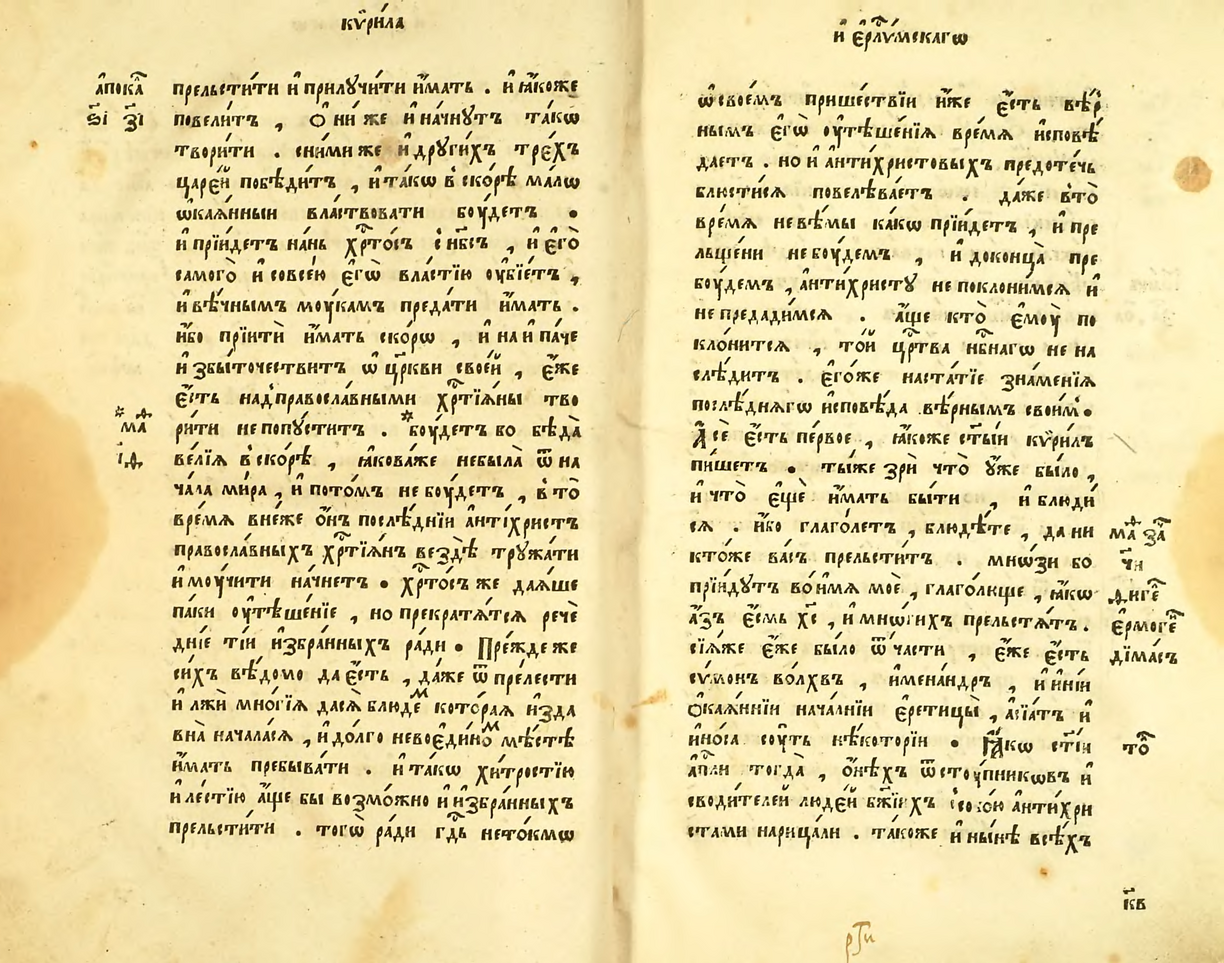 кѷри́ла
а҆пока̑
в҃і з҃і
прельсти́ти и҆ прилꙋчи́ти и҆́мать . и҆ ꙗ҆́коже
повели́тъ , ѻ҆ ни же и҆ начнꙋ́тъ та́кѡ
твори́ти . сни́ми же и҆ дрꙋги́хъ тре́хъ
царе́й побѣди́тъ , и҆ та́кѡ в҆ско́рѣ ма́лѡ
ѡ҆кая́нныи вла́ствовати бꙋ́детъ •
и҆ прїи́детъ на́нь хрⷭ҇то́съ с҆ нб҃съ , и҆ є҆го̀
самого̀ и҆ совсе́ю є҆гѡ̀ вла́стїю оу҆бїе́тъ ,
и҆ вѣ́чнымъ моу́камъ преда́ти и҆́мать .
и҆́бо прїитѝ и҆́мать ско́рѡ , и҆ на и҆ па́че
и҆ збы́точествитъ ѡ҆ цр҃кви свое́й , є҆́же
є҆́сть над̾правосла́вными хрⷭ҇тїѧ́ны тво
* д҃
ма
рити не попꙋ́ститъ . *бꙋ́детъ бо бѣда̀
і҃д
ве́лїѧ в҆ско́рѣ , ꙗ҆кова́же не была̀ ѿ на
ча́ла мира , и҆ пото́мъ не бꙋ́детъ , в҆ то̀
вре́мѧ вне́же ѻ҆́нъ послѣ́днїи а҆нті́христъ
правосла́вныхъ хрⷭ҇тїѧ́нъ вездѣ̀ трꙋжа́ти
и҆ моу́чити на́чнетъ • хрⷭ҇то́съ же даѧ́ше
па́ки оу҆тѣше́нїе , но прекратѧ́тсѧ речѐ
дні́е ті́и и҆збра́нныхъ ра́ди • Пре́жде же
си́хъ вѣ́домо да є҆́сть , да́же ѿ пре́лести
и҆ лжи́ мно́гїѧ дасѧ блюдеⷨ кото́раѧ и҆зда
вна̀ начала́сѧ , и҆ до́лго невоєди́ноⷨ мѣ́стѣ
и҆́мать пребыва́ти . и҆ та́кѡ хи́тростїю
и҆ ле́стїю а҆́ще бы возмо́жно и҆ и҆збра́нныхъ
прельсти́ти . тогѡ̀ ра́ди гдⷭ҇ь нето́кмѡ
и҆ є҆рⷭ҇лѵ́мскагѡ
ѡ҆ свое́мъ прише́ствїи и҆́же є҆́сть вѣ́р
нымъ є҆гѡ̀ оу҆тѣше́нїѧ вре́мѧ и҆сповѣ́
даетъ . но и҆ а҆нти́христовыхъ предоте́чь
блюсти́сѧ повелѣва́етъ . да́же в҆то̀
вре́мѧ не вѣ́мы ка́кѡ прїи́детъ , и҆ пре
льще́ни не бꙋ́демъ , и҆ доконца̀ пре
бꙋ́демъ , а҆нти́христꙋ не поклони́мсѧ и҆
не предади́мсѧ . а҆́ще кто̀ є҆мꙋ̀ по
клони́тсѧ , то́й црⷭ҇тва нбⷭ҇нагѡ не на
слѣ́дитъ . є҆го́же наста́тїе зна́менїѧ
послѣ́днѧгѡ и҆сповѣ́да . вѣ́рнымъ свои́мъ •
А҆ сѐ є҆́сть пе́рвое , ꙗ҆́коже ст҃ы́и кѷри́лъ
пи́шетъ • ты́же зрѝ что̀ оу҆́же бы́ло ,
и҆ что̀ є҆щѐ и҆́мать бы́ти , и҆ блюди́
сѧ . и҆́бо глаго́летъ , блюдѣ́те , да ни
ма д҃ заⷱ҇
кто́же ва́съ прельсти́тъ . мнѡ́зи бо
ч҃и
прїи́дꙋтъ во и҆́мѧ моѐ , глаго́лище , ꙗ҆́кѡ
диге
а҆́зъ є҆́смь хс҃ , и҆ мнѡ́гихъ прельстѧ́тъ .
є҆рмоге
сїѧ́же є҆́же бы́ло ѿ ча́сти , є҆́же є҆́сть
ді́масъ
сѵ́монъ во́лхвъ , и҆мена́ндръ , и҆ и҆ні́и
ѻ҆кая́ннїи нача́лнїи є҆ретицы̀ , а҆сїа́тъ и҆
и҆но́са соу́ть нѣ́которїи • Ꙗ҆́кѡ ст҃і́и
тоⷤ
а҆пⷭ҇ли тогда̀ , ѻ҆́нѣхъ ѿстꙋ́пникѡвъ и҆
сводителе́й люде́й бж҃їихъ собо́ю а҆нтихри
стами нарица́ли . та́коже и҆ ны́нѣ всѣ́хъ
к҃в